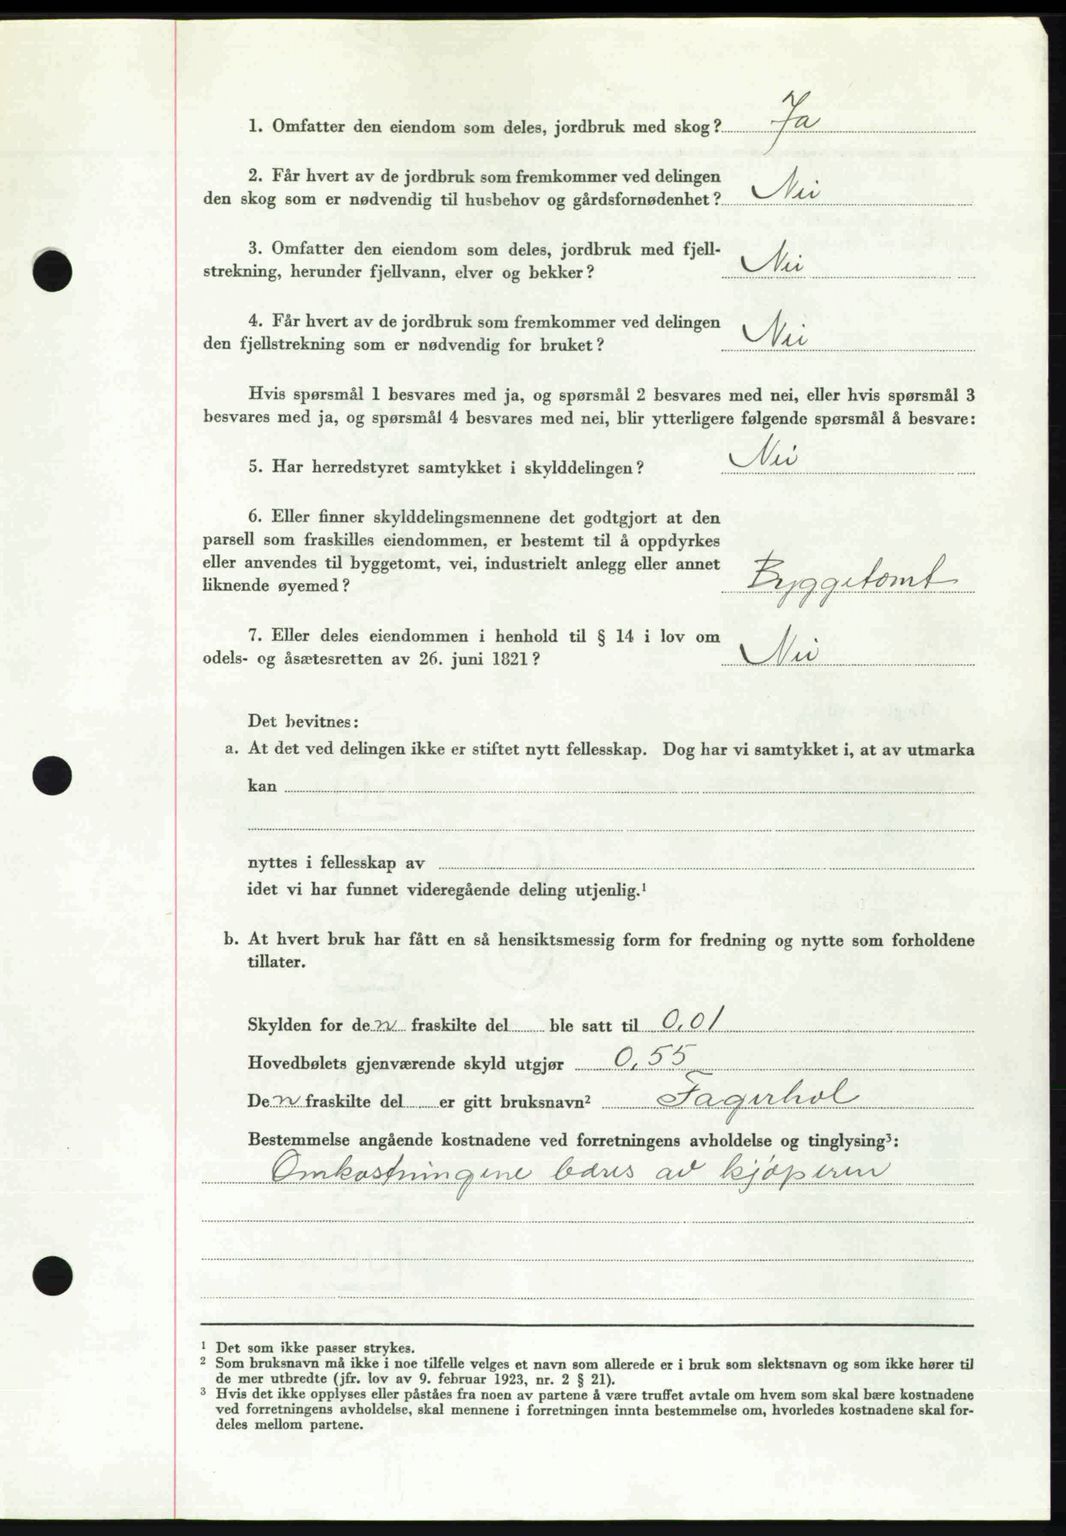 1. Omfatter den eiendom som deles, jordbruk med skog? Ja
2. Får hvert av de jordbruk som fremkommer ved delingen
den skog som er nødvendig til husbehov og gårdsfornødenhet? Nei
3. Omfatter den eiendom som deles, jordbruk med fjell-
strekning, herunder fjellvann, elver og bekker? Nei
4. Får hvert av de jordbruk som fremkommer ved delingen
den fjellstrekning som er nødvendig for bruket? Nei
Hvis spørsmål 1 besvares med ja, og spørsmål 2 besvares med nei, eller hvis spørsmål 3
besvares med ja, og spørsmål 4 besvares med nei, blir ytterligere følgende spørsmål å besvare:
5. Har herredstyret samtykket i skylddelingen? Nei
6. Eller finner skylddelingsmennene det godtgjort at den
parsell som fraskilles eiendommen, er bestemt til å oppdyrkes
eller anvendes til byggetomt, vei, industrielt anlegg eller annet
liknende øyemed? Byggetomt
7. Eller deles eiendommen i henhold til § 14 i lov om
odels- og åsætesretten av 26. juni 1821? Nei
Det bevitnes:
a. At det ved delingen ikke er stiftet nytt fellesskap. Dog har vi samtykket i, at av utmarka
kan
nyttes i fellesskap av
idet vi har funnet videregående deling utjenlig.¹
b. At hvert bruk har fått en så hensiktsmessig form for fredning og nytte som forholdene
tillater.
Skylden for den fraskilte del ble satt til 0,01
Hovedbølets gjenværende skyld utgjør 0,55
Den fraskilte del er gitt bruksnavn² Fagerhol
Bestemmelse angående kostnadene ved forretningens avholdelse og tinglysing³:
Omkostningene bæres av kjøperen
¹ Det som ikke passer strykes.
² Som bruksnavn må ikke i noe tilfelle velges et navn som allerede er i bruk som slektsnavn og som ikke hører til
de mer utbredte (jfr. lov av 9. februar 1923, nr. 2 § 21).
³ Hvis det ikke opplyses eller påståes fra noen av partene å være truffet avtale om hvem som skal bære kostnadene
ved forretningens avholdelse, skal mennene i forretningen innta bestemmelse om, hvorledes kostnadene skal for-
deles mellom partene.